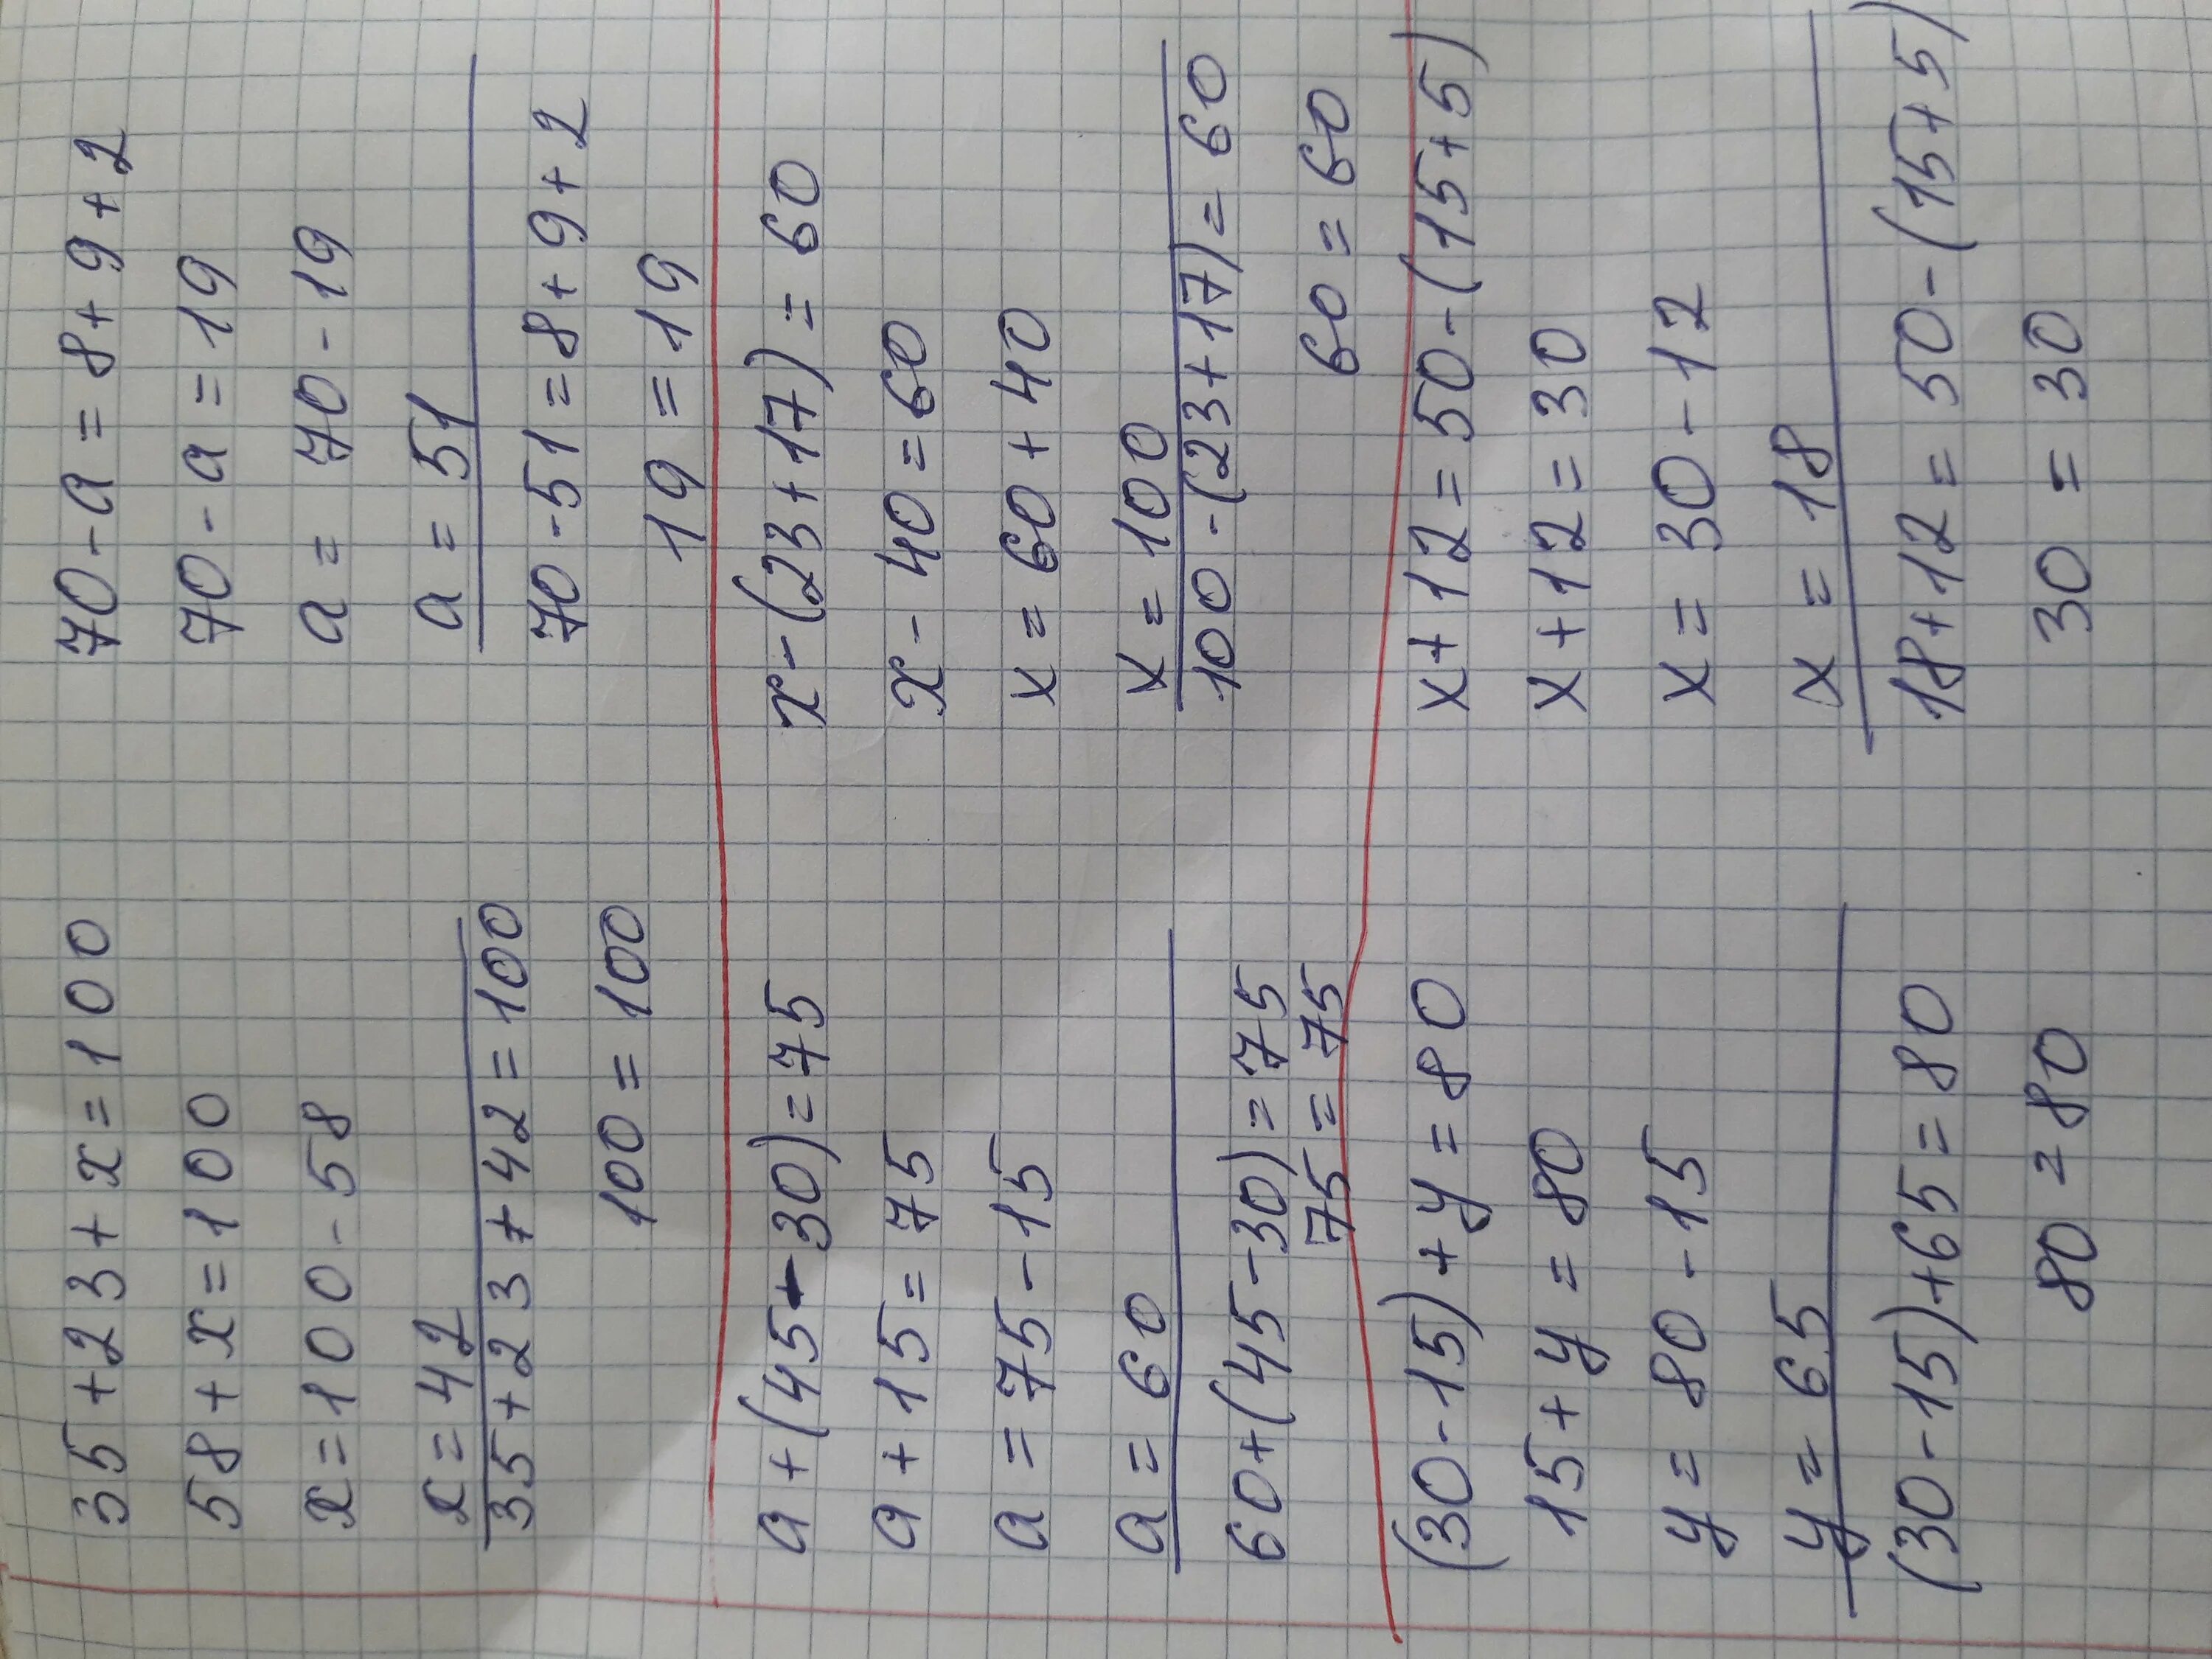 35+23+x=100
58+x=100
x=100-58
x=42
35+23+42=100
100=100
70-a=8+9+2
70-a=19
a=70-19
a=51
70-51=8+9+2
19=19
a+(45-30)=75
a+15=75
a=75-15
a=60
60+(45-30)=75
75=75
x-(23+17)=60
x-40=60
x=60+40
x=100
100-(23+17)=60
60=60
(30-15)+y=80
15+y=80
y=80-15
y=65
(30-15)+65=80
80=80
x+12=50-(15+5)
x+12=30
x=30-12
x=18
18+12=50-(15+5)
30=30